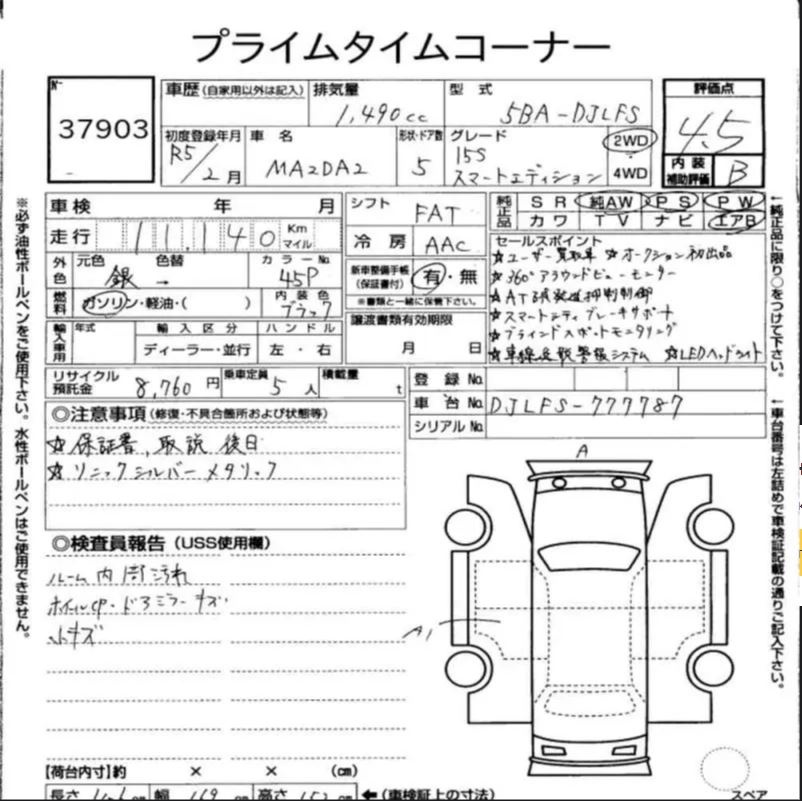 プライムタイムコーナー
37903
車歴 (自家用以外は記入)
排気量
1,490cc
型式
5BA-DJLFS
評価点
4.5
初度登録年月
R5/2月
車名
MAZDA2
形状・ドア数
5
グレード
15S
スマートエディション
2WD
4WD
内装
補助評価
B
車検 年 月
走行 11,140 Km マイル
シフト
FAT
冷房 AAC
純正品
SR 純AW PS PW
カワ TV ナビ エアB
外色
元色 色替 カラーNo.
銀→ 45P
燃料
ガソリン・軽油・( )
内装色
ブラック
新車整備手帳
(保証書付)
有・無
※書類と一緒に保管下さい。
セールスポイント
☆ユーザー買取車 ☆オークション初出品
☆360°アラウンドビューモニター
☆AT誤発進抑制制御
☆スマートシティブレーキサポート
☆ブラインドスポットモニタリング
☆車線逸脱警報システム ☆LEDヘッドライト
輸入車用
年式 輸入区分 ハンドル
ディーラー・並行 左・右
譲渡書類有効期限
月 日
リサイクル
預託金
8,760円
乗車定員 5人
積載量 t
登録No.
車台No. DJLFS-777787
シリアルNo.
◎注意事項(修復・不具合箇所および状態等)
☆保証書、取説 後日
☆ソニックシルバーメタリック
◎検査員報告(USS使用欄)
ルーム内 汚れ
ホイルCP・ドアミラーキズ
小キズ
A
A1
【荷台内寸】約 × × (cm)
長さ
幅 169
高さ
←(車検証上の寸法)
スペア
※必ず油性ボールペンをご使用下さい。水性ボールペンはご使用できません。
←純正品に限り○をつけて下さい。
←車台番号は左詰めで車検証記載の通りご記入下さい。